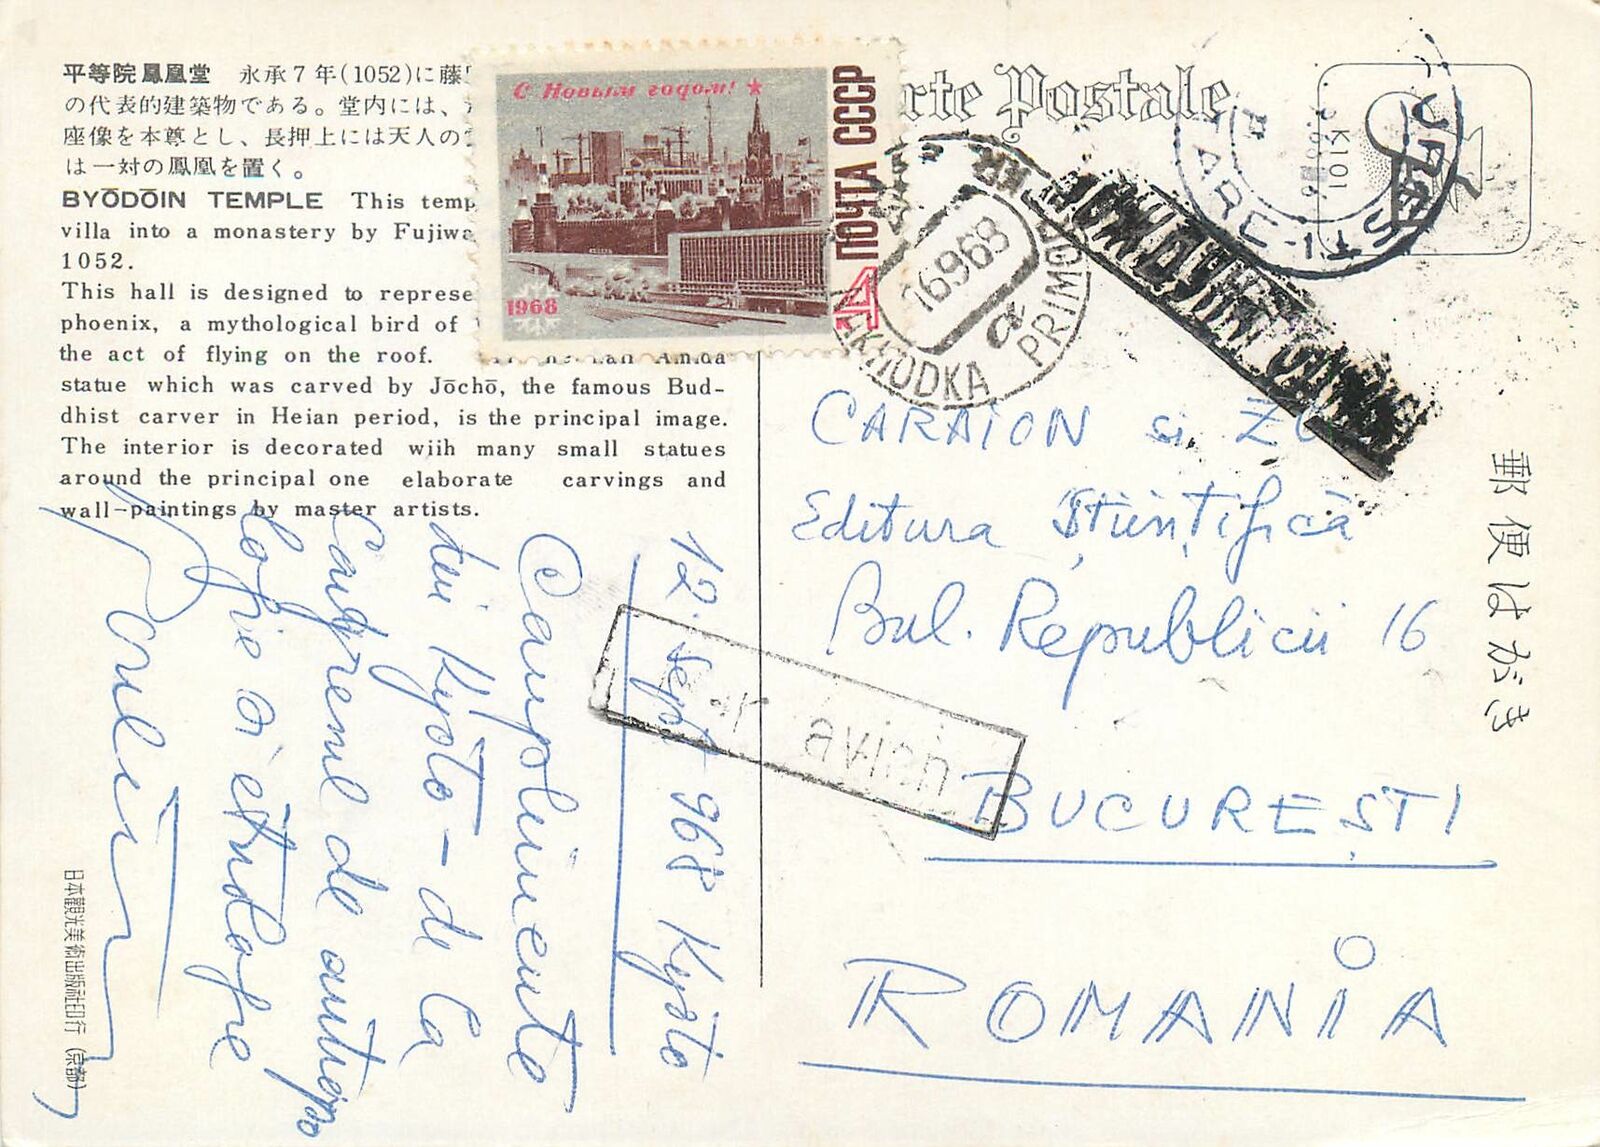 平等院鳳凰堂　永承7年(1052)に藤
の代表的建築物である。堂内には、
座像を本尊とし、長押上には天人の
は一対の鳳凰を置く。
BYŌDŌIN TEMPLE This temp
villa into a monastery by Fujiwa
1052.
This hall is designed to represe
phoenix, a mythological bird of
the act of flying on the roof. Amida
statue which was carved by Jōchō, the famous Bud-
dhist carver in Heian period, is the principal image.
The interior is decorated wiih many small statues
around the principal one elaborate carvings and
wall-paintings by master artists.
С Новым годом!
1968
4
ПОЧТА СССР
rte Postale
NAKHODKA PRIMOR
16968
a
CARAION si
Editura Științifică
Bul. Republicii 16
BUCUREȘTI
ROMANIA
par avion
郵便はがき
12. sept 968 Kyoto
Complimente
din Kyoto - de la
Congresul de antropo
logie și etnologie
日本観光美術出版社印行 (京都)